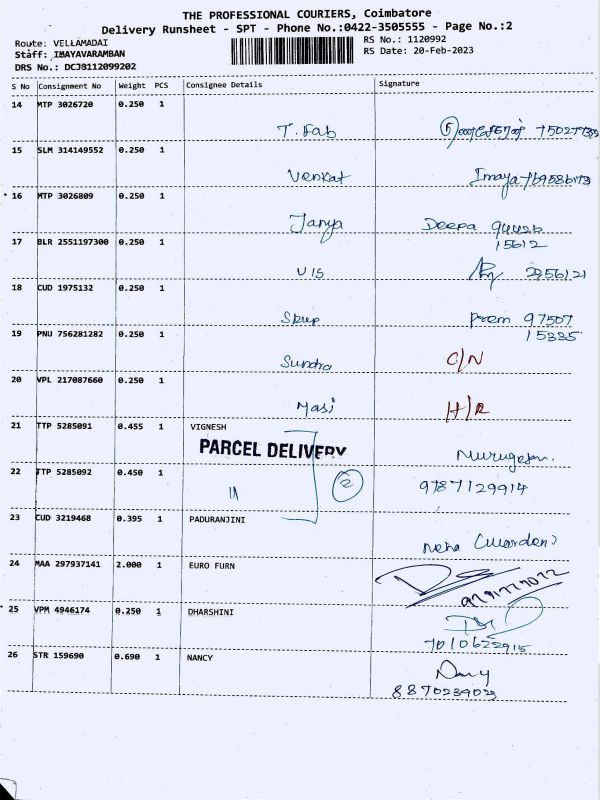 THE PROFESSIONAL COURIERS, Coimbatore
Delivery Runsheet - SPT - Phone No.:0422-3505555 - Page No.:2
Route: VELLAMADAI
RS No.: 1120992
Staff: IMAYAVARAMBAN
RS Date: 20-Feb-2023
DRS No.: DCJB112099202
S No Consignment No Weight PCS Consignee Details Signature
14 MTP 3026720 0.250 1
T. Fab
15 SLM 314149552 0.250 1
Venkat Imaya
16 MTP 3026809 0.250 1
Janya Deepa 94426
15612
17 BLR 2551197300 0.250 1
VIS 2956121
18 CUD 1975132 0.250 1
Prem 97507
15335
19 PNU 756281282 0.250 1
Sundra C/N
20 VPL 217087660 0.250 1
Masi H/R
21 TTP 5285091 0.455 1 VIGNESH
PARCEL DELIVERY
Murugesan.
22 TTP 5285092 0.450 1
2 9787129914
23 CUD 3219468 0.395 1 PADURANJINI
Neha (Warden)
24 MAA 297937141 2.000 1 EURO FURN
25 VPM 4946174 0.250 1 DHARSHINI
7010622915
26 STR 159690 0.690 1 NANCY
Nancy
8870234023